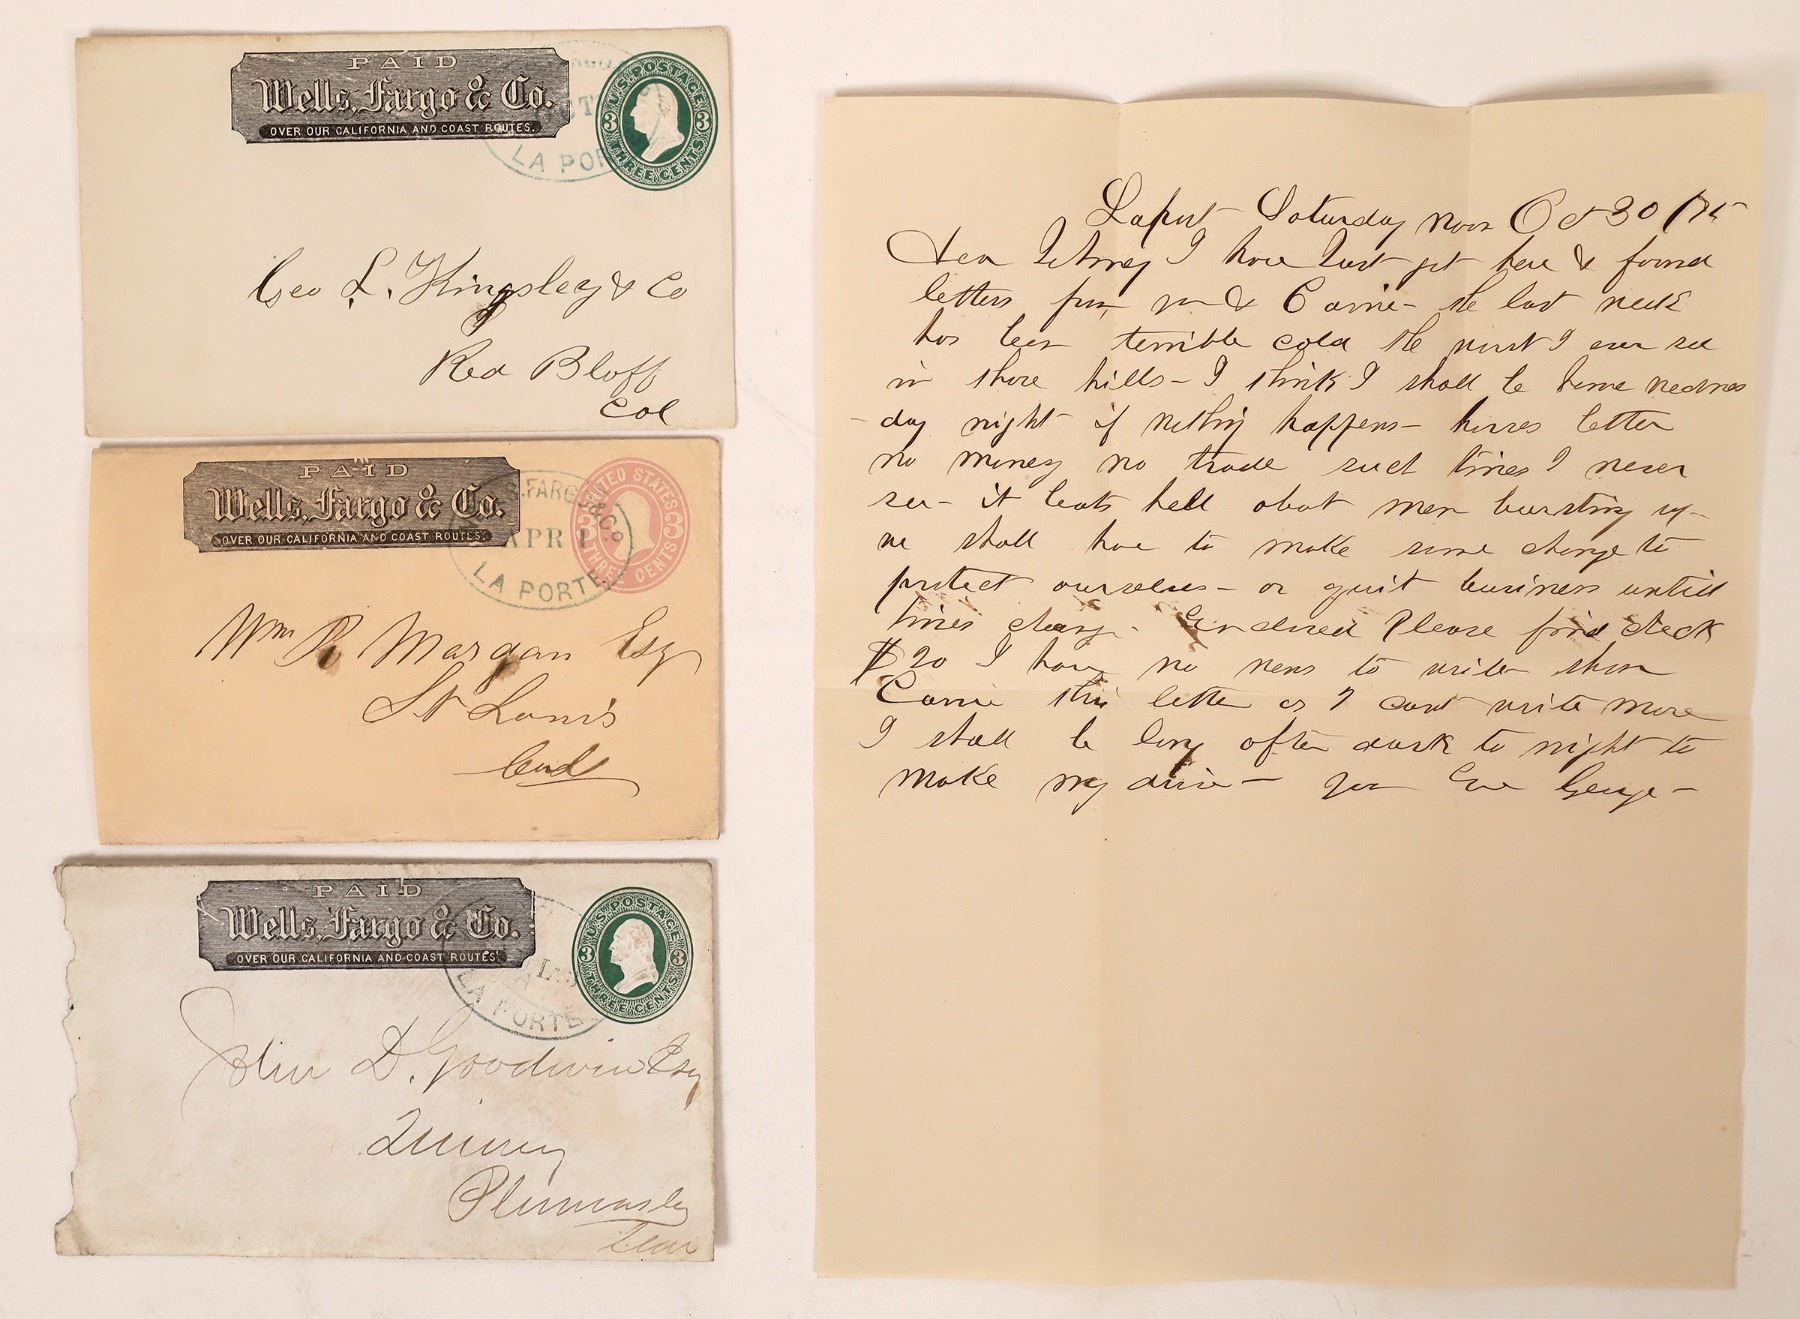 PAID
Wells, Fargo & Co.
OVER OUR CALIFORNIA AND COAST ROUTES.
LA POR
U.S. POSTAGE
3 3
THREE CENTS
Geo L. Kingsley & Co
Red Bluff
Cal
PAID
Wells, Fargo & Co.
OVER OUR CALIFORNIA AND COAST ROUTES.
S. FARGO & Co
APR 1
LA PORTE
UNITED STATES
3 3
THREE CENTS
Wm R Morgan Esq
St Louis
PAID
Wells, Fargo & Co.
OVER OUR CALIFORNIA AND COAST ROUTES.
LA PORTE
U.S. POSTAGE
3 3
THREE CENTS
John D. Goodwin Esq
Quincy
Plumas
Laport Saturday Noon Oct 30 /75
Dear I have Just got here & found
letters from you & Carrie - the last week
has been terrible cold the worst I ever see
in these hills - I think I shall be home Wednes
day night if nothing happens - letter
no money no trade such times I never
see - it beats hell about men bursting up -
we shall have to make some change to
protect ourselves - or quit business untill
times change - Enclosed Please find check
$20 I have no news to write show
Carrie this letter as I cant write more
I shall be long after dark to night to
make my drive - your George -